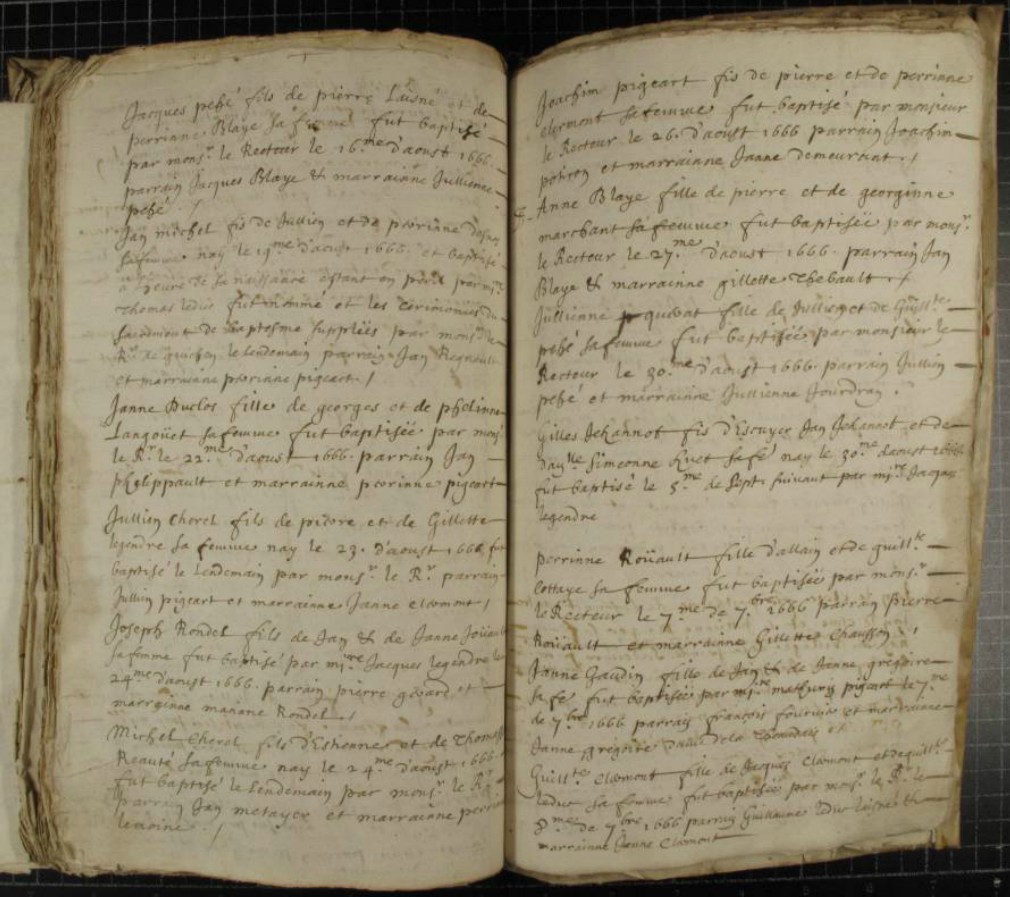 Jacques pebé fils de pierre Laisné et de
perrinne Blaye sa femme fut baptisé
par mons.r le Recteur le 16.me d'aoust 1666.
parrain Jacques Blaye & marrainne Jullienne
pebé /
Jan michel fis de Jullien et de perrinne
sa femme nay le 19.me d'aoust 1666. et baptisé
a l'heure de sa naissance estant en peril par
Thomas leduc fut nommé et les cerimonies du
sacrement de baptesme suppleés par mons.r le
R.r de guichen le lendemain parrein Jan Regnault
et marrainne perrinne pigeart /
Janne Duclos fille de georges et de phelinne
Langoüet sa femme fut baptiseé par mons
le R.r le 22.me d'aoust 1666. parrain Jan
phelippault et marrainne perrinne pigeart
Jullien Chorel fils de pierre et de Gillette
legendre sa femme nay le 23. d'aoust 1666 fut
baptisé le Lendemain par mons.r le R.r parrain
Jullien pigeart et marrainne Janne clermont /
Joseph Rondel fils de Jan & de Janne
sa femme fut baptisé par mi.re Jacques legendre le
24.me d'aoust 1666. parrain pierre et
marrainne Rondel /
Michel Chorel fils d'Estienne et de Thomasse
Reauté sa femme nay le 24.me d'aoust 1666
fut baptisé le Lendemain par mons.r le R.r
parrain Jan metayer et marrainne perrinne
lemoine /
Joachim pigeart fis de pierre et de perrinne
clermont sa femme fut baptisé par monsieur
le Recteur le 26. d'aoust 1666 parrain Joachim
poiron et marrainne Janne /
Anne Blaye fille de pierre et de georginne
marchant sa femme fut baptiseé par mons.r
le Recteur le 27.me d'aoust 1666. parrain Jan
Blaye & marrainne gillette Thebault /
Jullienne fille de Jullien et de Guill.te
pebé sa femme fut baptiseé par monsieur le
Recteur le 30.me d'aoust 1666. parrain Jullien
pebé et marrainne Jullienne Jourdran.
Gilles Jehannot fis d'Escuyer Jan Jehannot et de
dam.lle Simeonne huet sa fe nay le 30.me daoust 1666
fut baptisé le 5.me de Sept. suivant par mi.re Jacques
legendre
perrinne Roüault fille d'allain et de guill.te
cottaye sa femme fut baptiseé par mons.r
le Recteur le 7.me de 7.bre 1666 parrain pierre
Roüault et marrainne Gillette Chausson /
Janne Gaudin fille de Jan & de Janne gregoire
sa fe fut baptiseé par mi.re mathurin pigeart le 7.me
de 7.bre 1666 parrain françois et marrainne
Janne gregoire
Guill.te Clermont fille de Jacques Clermont et de guill.te
leduc sa femme fut baptiseé par mons.r le R.r le
8.me de 7.bre 1666 parrain Guillaume leduc laisné &
marrainne Janne Clermont